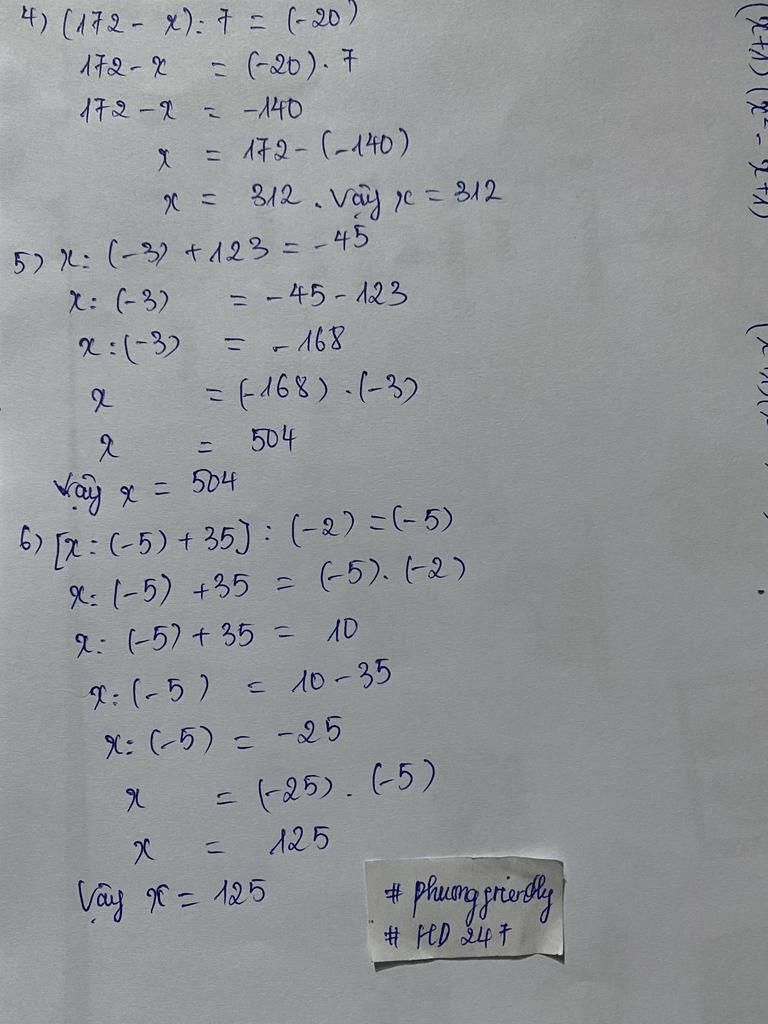 4) (172 - x) : 7 = (-20)
172 - x = (-20) . 7
172 - x = -140
x = 172 - (-140)
x = 312 . Vậy x = 312
5) x : (-3) + 123 = -45
x : (-3) = -45 - 123
x : (-3) = -168
x = (-168) . (-3)
x = 504
Vậy x = 504
6) [x : (-5) + 35] : (-2) = (-5)
x : (-5) + 35 = (-5) . (-2)
x : (-5) + 35 = 10
x : (-5) = 10 - 35
x : (-5) = -25
x = (-25) . (-5)
x = 125
Vậy x = 125
# phuongfriendly
# HD 247
(x+1) (x² - x+1)